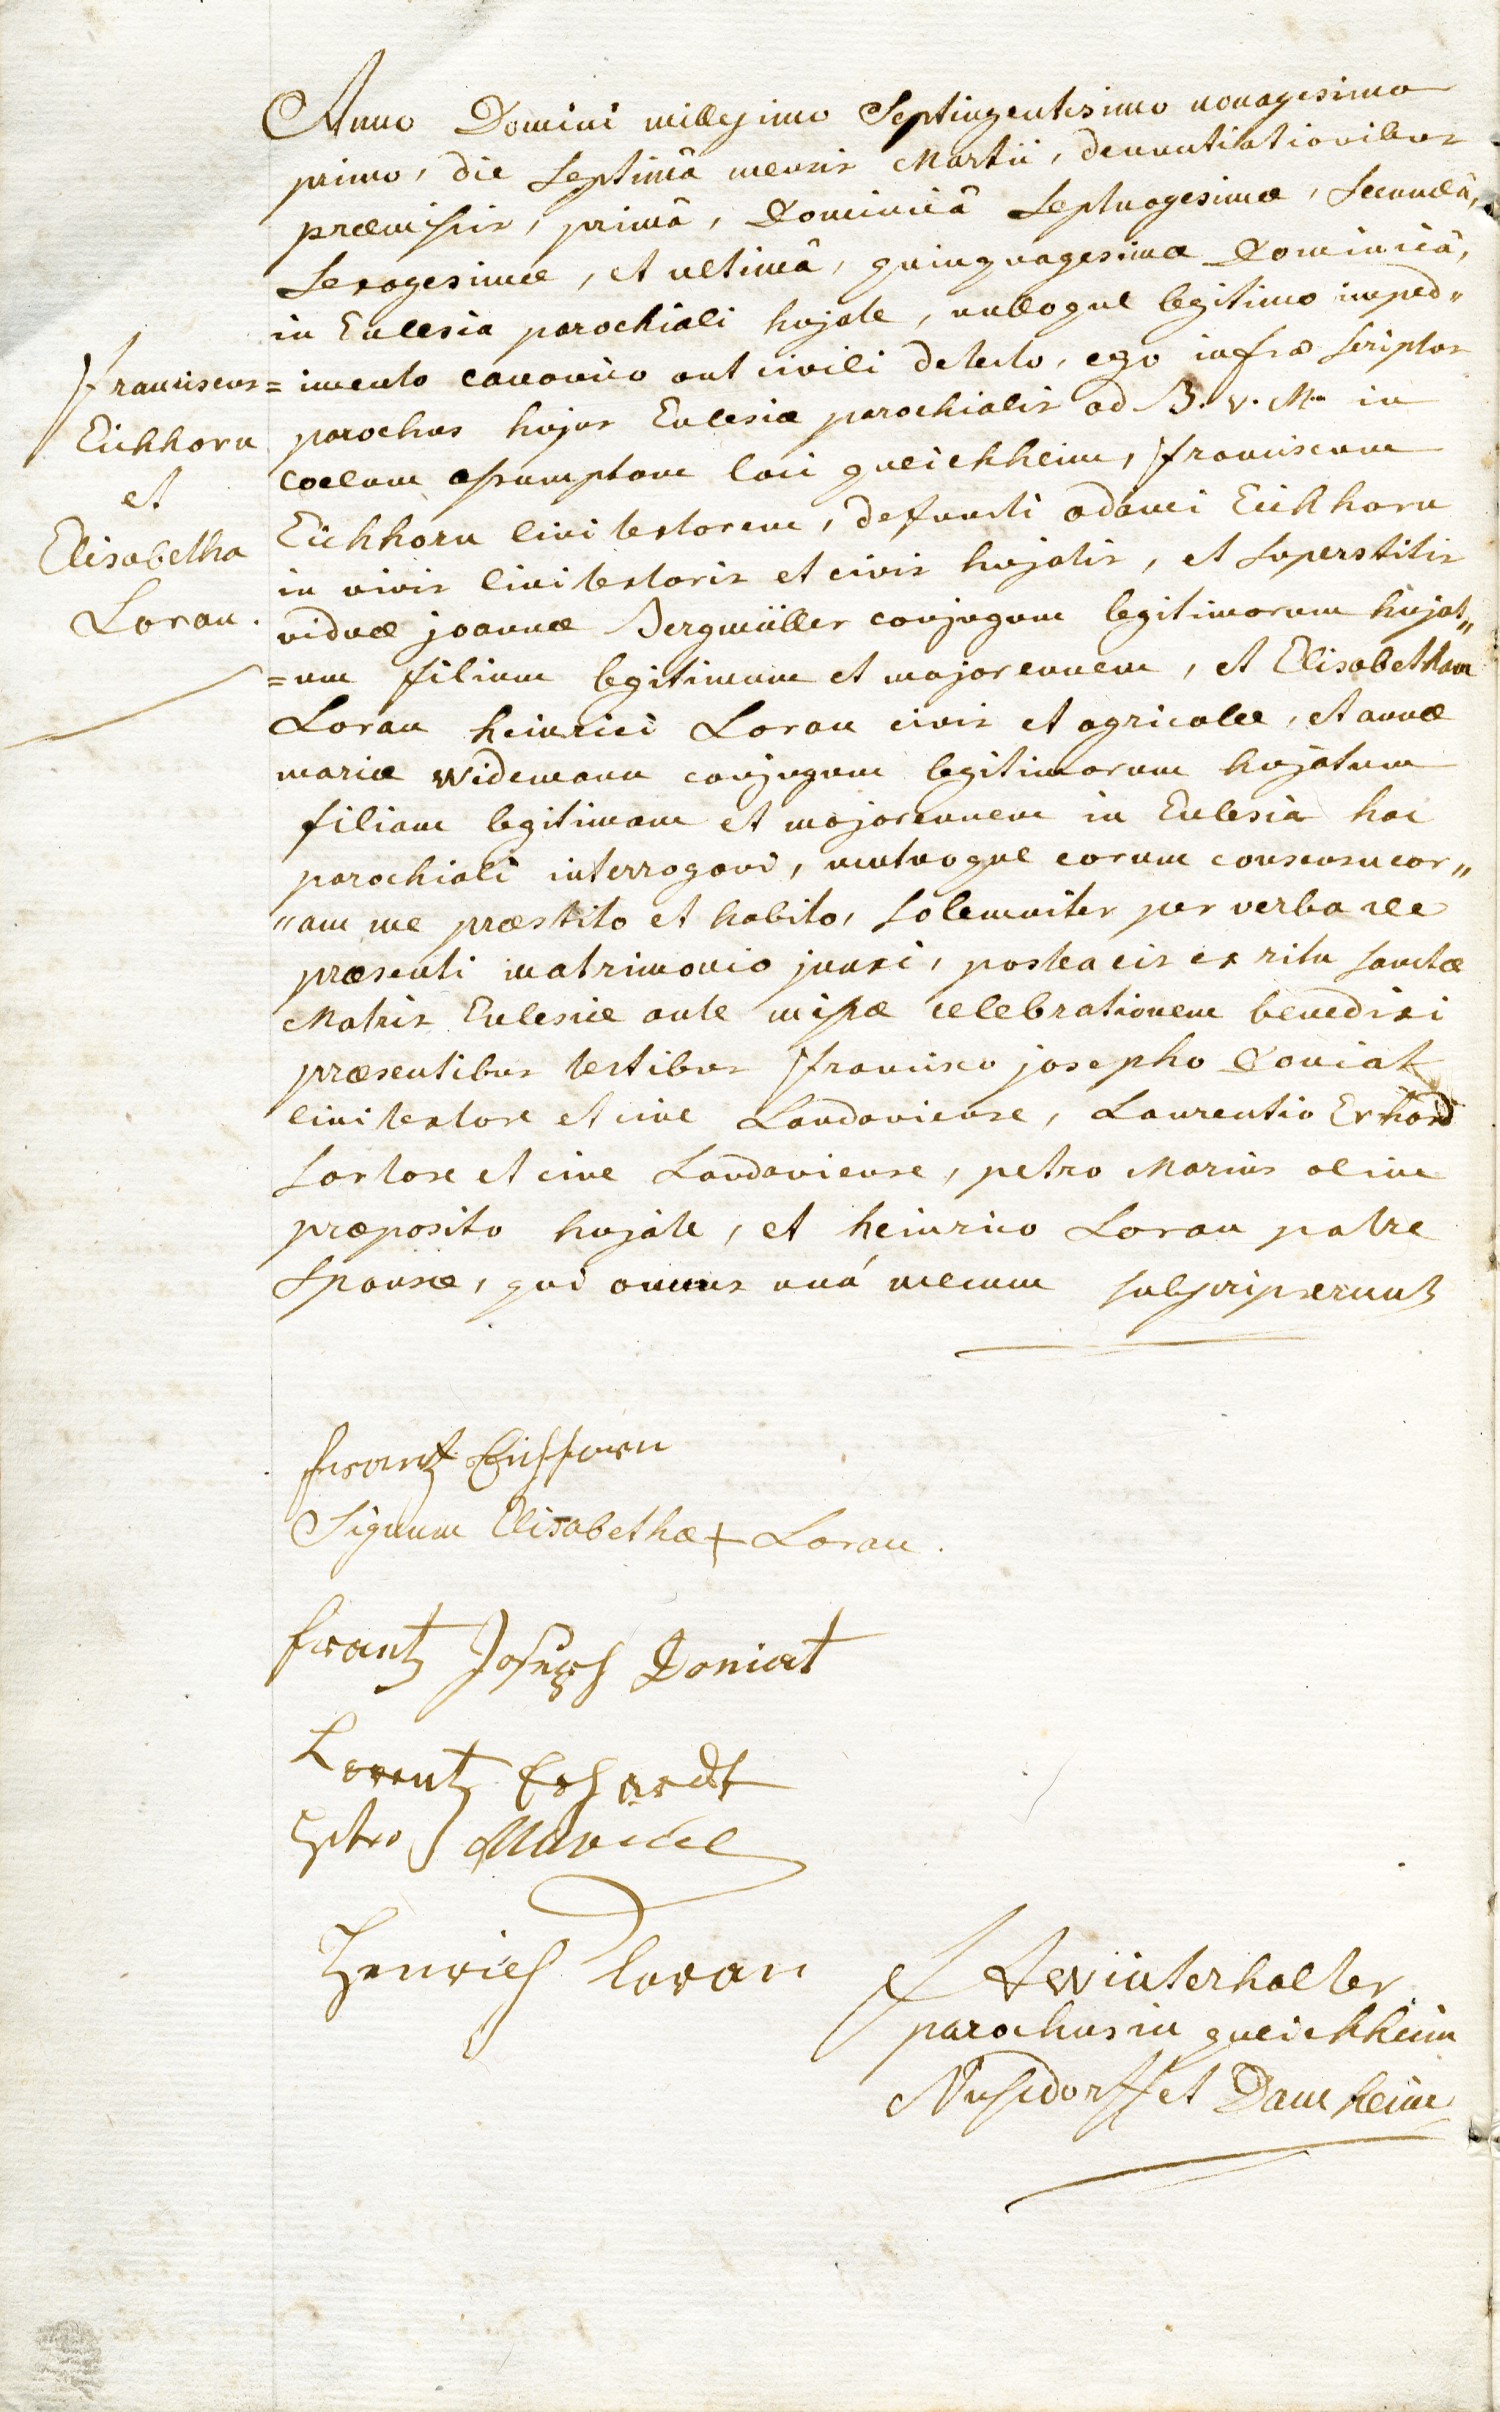 Franciscus
Eichhorn
et
Elisabetha
Loran.
Anno Domini millesimo Septingentesimo nonagesimo
primo, die septimâ mensis Martii, denuntiationibus
præmissis, primâ, Dominicâ septuagesimæ, secundâ,
sexagesimæ, et ultimâ, quinquagesimæ Dominicâ,
in Ecclesia parochiali hujate, nulloque legitimo imped„
=imento canonico aut civili detecto, ego infra scriptus
parochus hujus Ecclesiæ parochialis ad B. V. M. in
coelum assumptam loci queichheim, franciscum
Eichhorn linitextorem, defuncti adami Eichhorn
in vivis linitextoris et civis hujatis, et superstitis
viduæ joannæ Bergmüller conjugum legitimorum hujat„
=um filium legitimum et majorennem, et Elisabetham
Loran heinrici Loran civis et agricolæ, et annæ
mariæ Widemann conjugum legitimorum hujatum
filiam legitimam et majorennem in Ecclesia hac
parochiali interrogavi, mutuoque eorum consensu cor„
„am me præstito et habito, solemniter per verba de
præsenti matrimonio junxi, postea eis ex ritu sanctæ
Matris Ecclesiæ ante missæ celebrationem benedixi
præsentibus testibus francisco josepho Doniat
linitextore et cive Landaviense, Laurentio Erhard
sartore et cive Landaviense, petro Marius olim
præposito hujate, et heinrico Loran patre
sponsæ, qui omnes unà mecum subscripserunt
frantz Eichhorn
Signum Elisabethæ + Loran.
frantz Joseph Doniat
Lorentz Erhardt
Henrich Loran
Winterhalter
parochus in queichheim
Nussdorff et Damheim